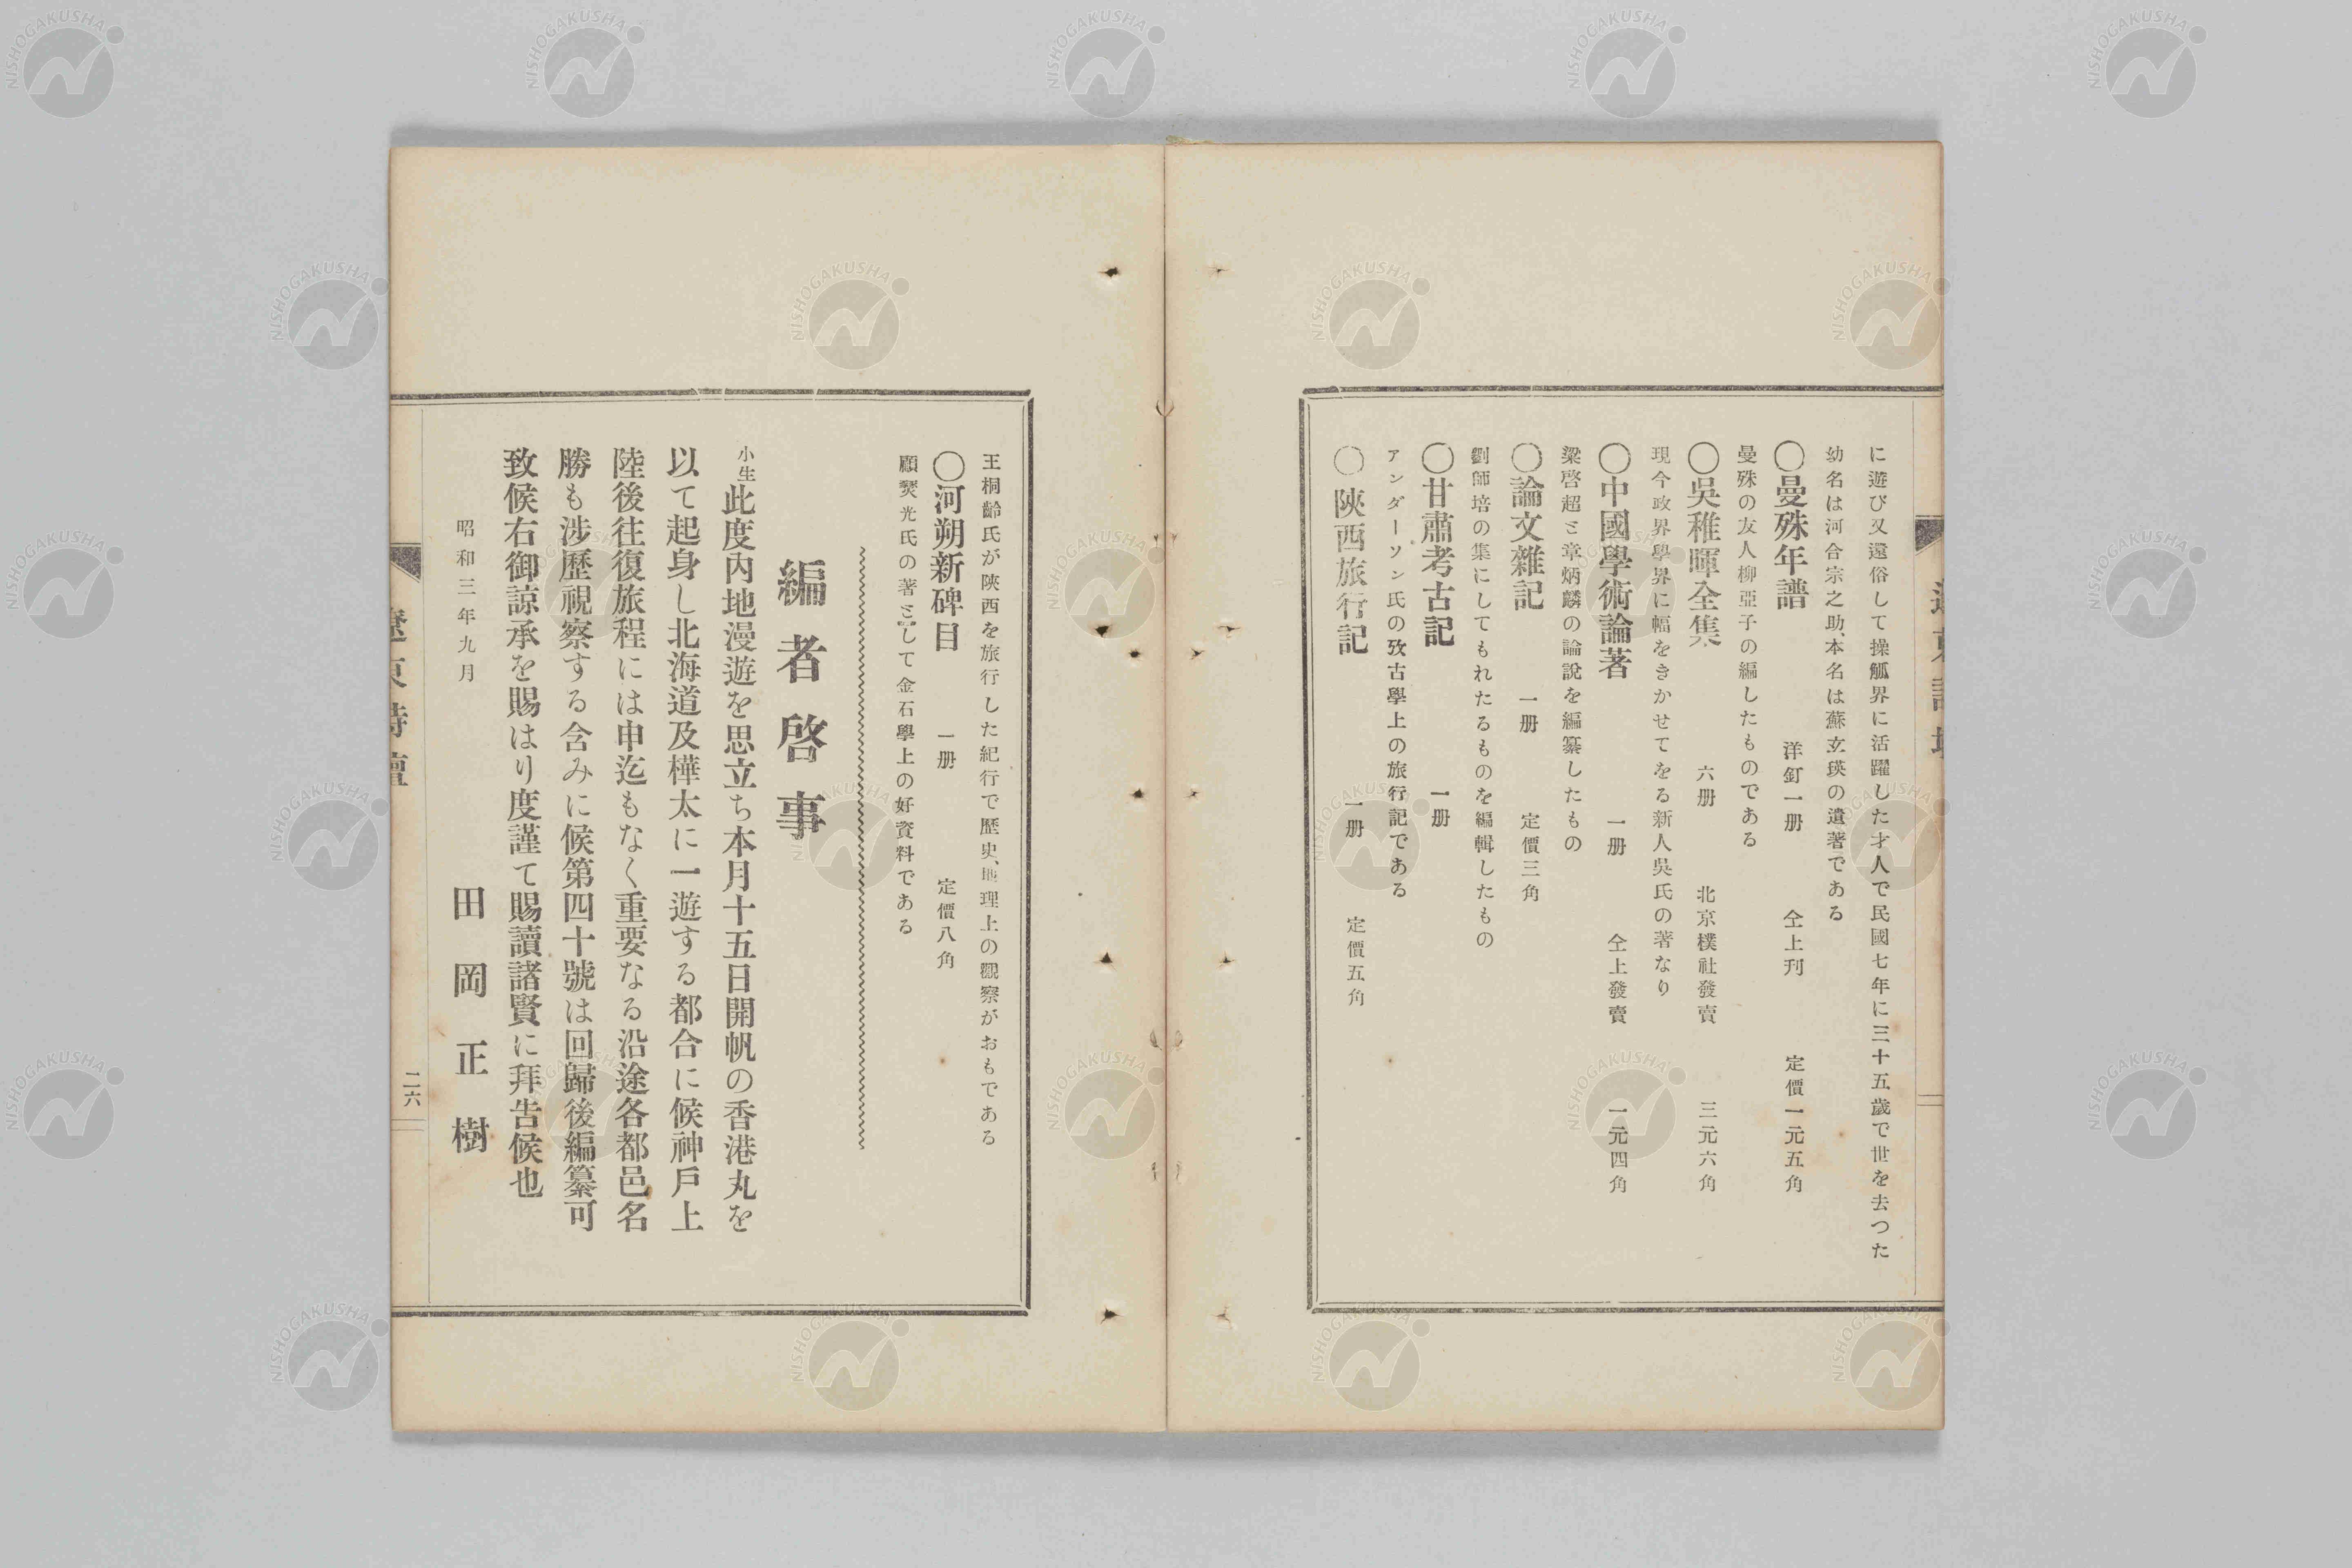 に遊び又還俗して操觚界に活躍した才人で民國七年に三十五歲で世を去つた
幼名は河合宗之助、本名は蘇玄瑛の遺著である
〇曼殊年譜　洋釘一册　仝上刊　定價一元五角
曼殊の友人柳亞子の編したものである
〇吳稚暉全集　六册　北京樸社發賣　三元六角
現今政界學界に幅をきかせてをる新人吳氏の著なり
〇中國學術論著　一册　仝上發賣　一元四角
梁啓超と章炳麟の論說を編纂したもの
〇論文雜記　一册　定價三角
劉師培の集にしてもれたるものを編輯したもの
〇甘肅考古記　一册
アンダーソン氏の攷古學上の旅行記である
〇陝西旅行記　一册　定價五角
王桐齡氏が陝西を旅行した紀行で歷史、地理上の觀察がおもである
〇河朔新碑目　一册　定價八角
顧燮光氏の著として金石學上の好資料である
編者啓事
小生此度內地漫遊を思立ち本月十五日開帆の香港丸を
以て起身し北海道及樺太に一遊する都合に候神戶上
陸後往復旅程には申迄もなく重要なる沿途各都邑名
勝も涉歷視察する含みに候第四十號は回歸後編纂可
致候右御諒承を賜はり度謹て賜讀諸賢に拜告候也
昭和三年九月
田岡正樹
遼東詩壇
二六
NISHOGAKUSHA